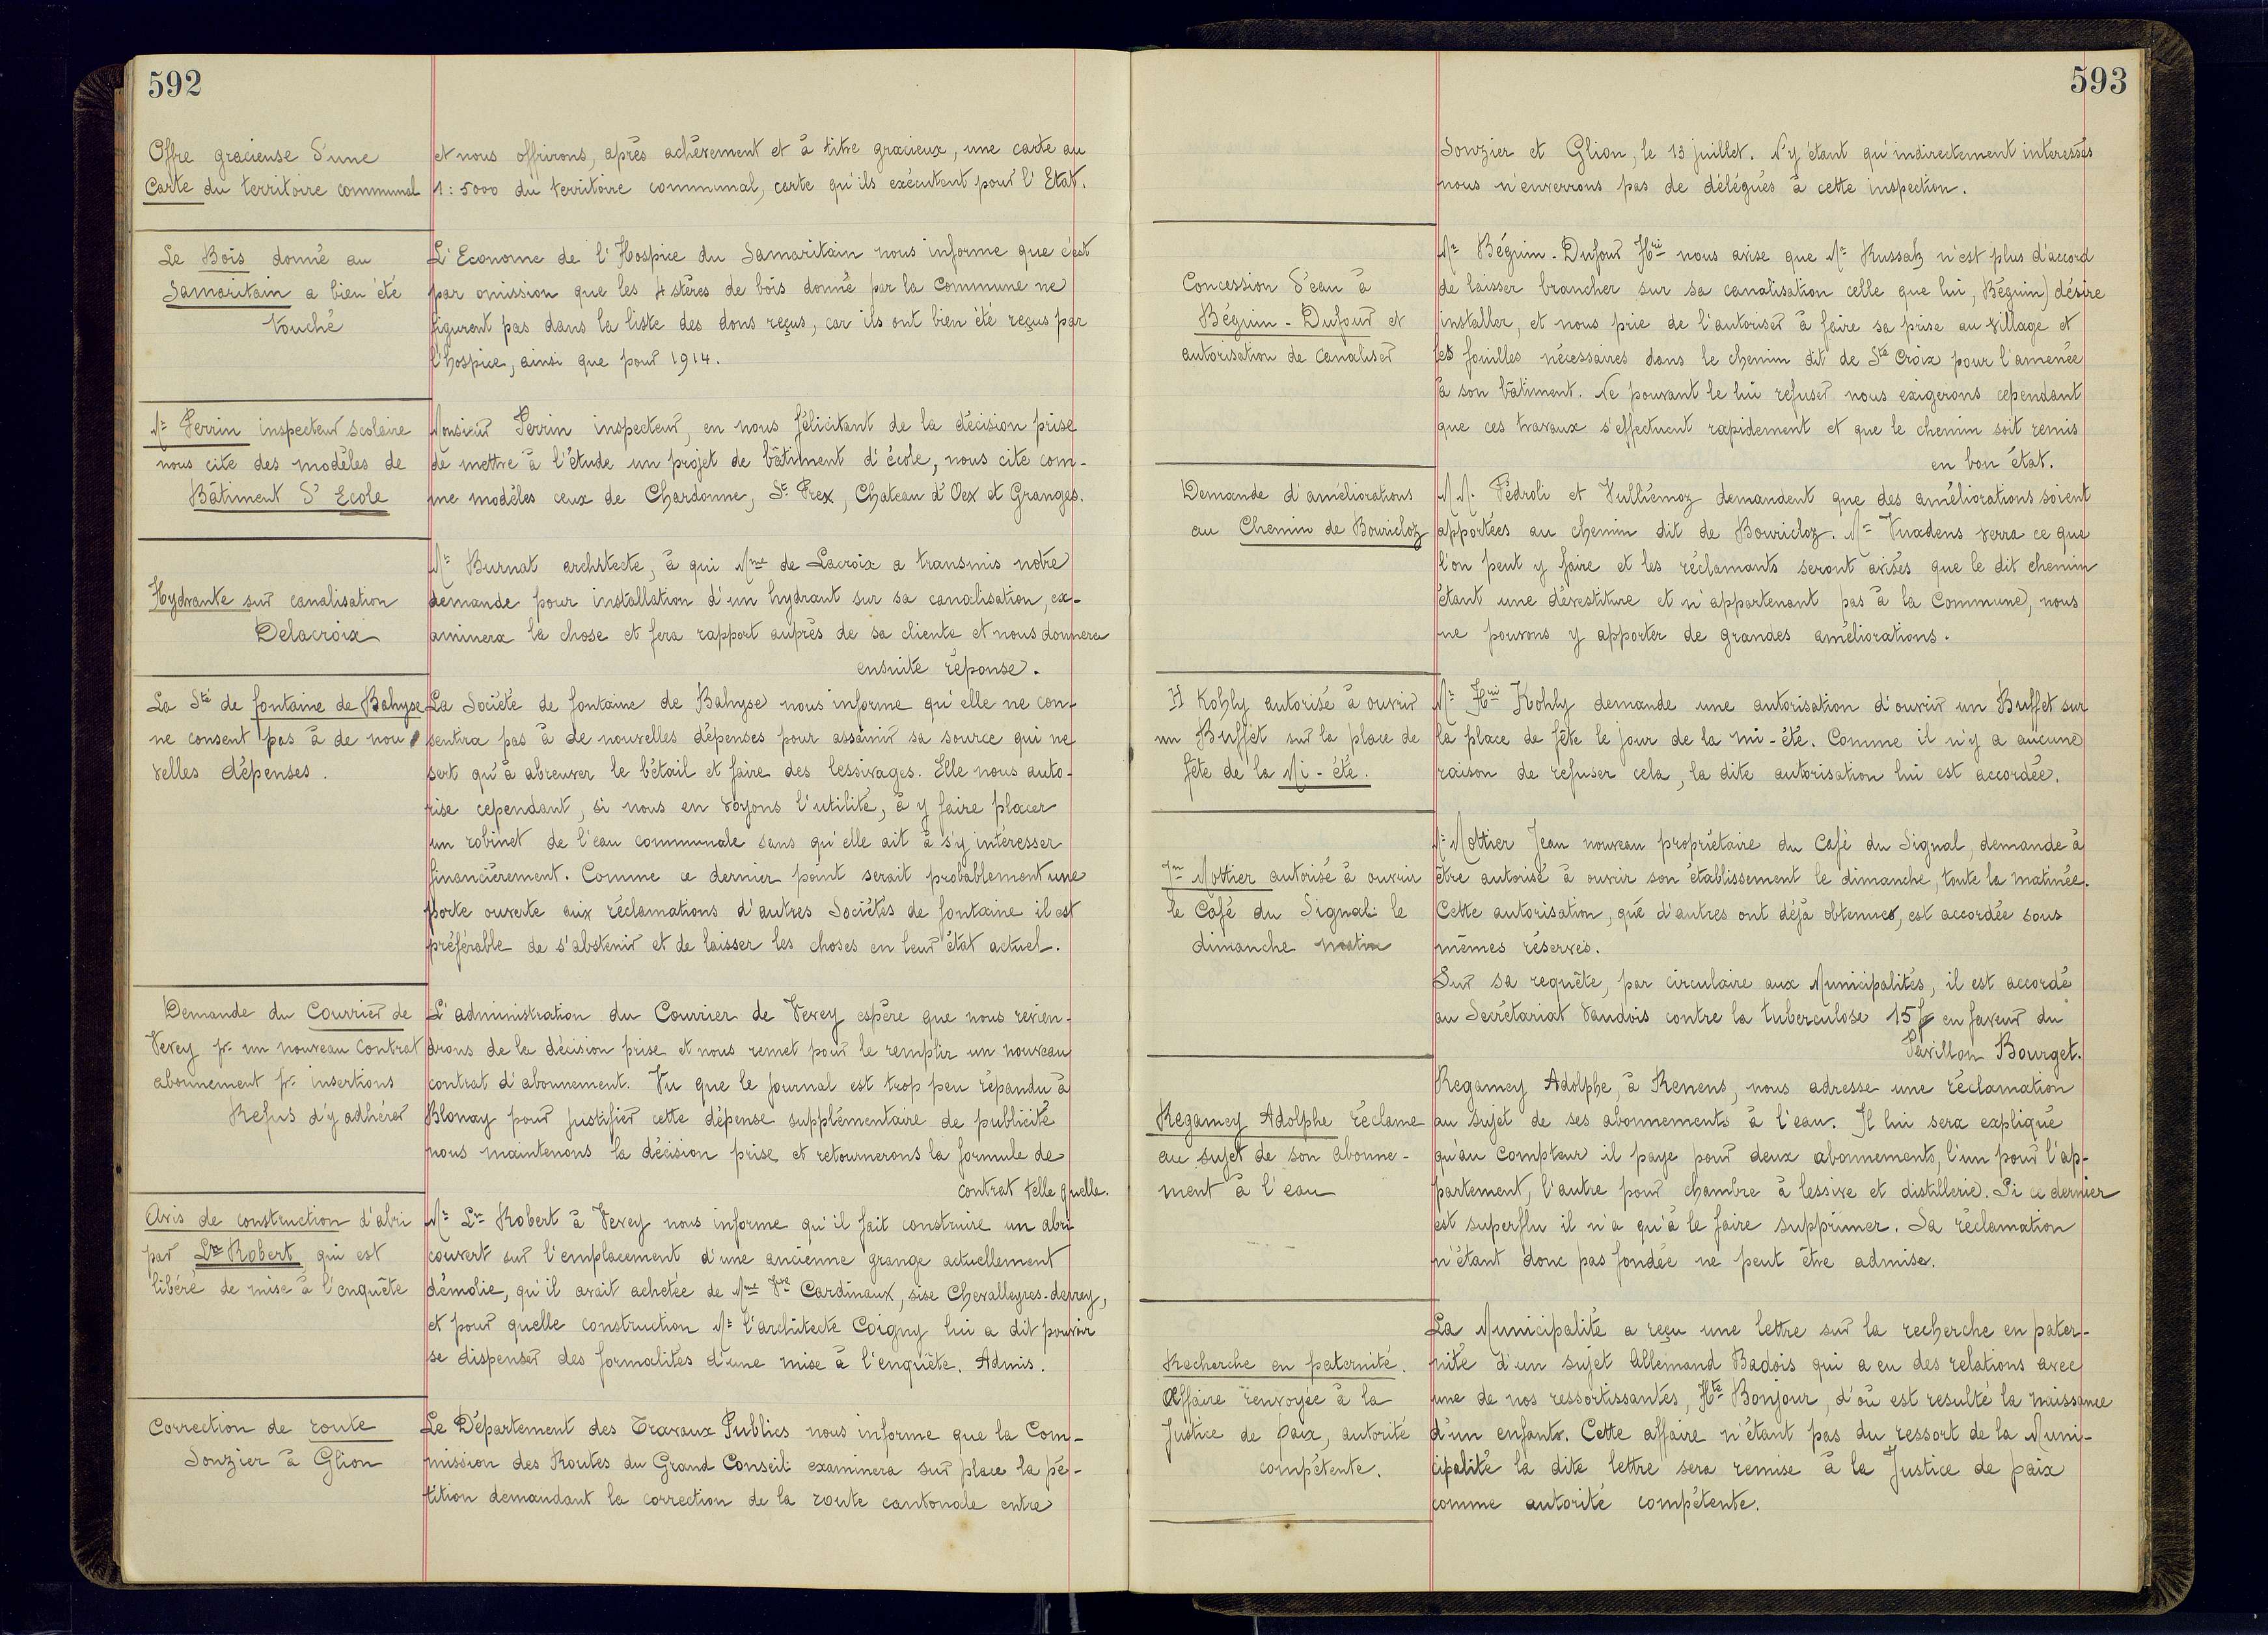 592
Offre gracieuse d'une
Carte du territoire communal
et nous offrirons, après achèvement et à titre gracieux, une carte au
1:5000 du territoire communal, carte qu'ils exécutent pour l'Etat.
Le Bois donné au
Samaritain a bien été
touché
L'Econome de l'Hospice du Samaritain nous informe que c'est
par omission que les 4 stères de bois donné par la Commune ne
figurent pas dans la liste des dons reçus, car ils ont bien été reçus par
l'hospice, ainsi que pour 1914.
Mr Perrin inspecteur scolaire
nous cite des modèles de
Bâtiment d'Ecole
Monsieur Perrin inspecteur, en nous félicitant de la décision prise
de mettre à l'étude un projet de bâtiment d'école, nous cite com-
me modèles ceux de Chardonne, St Prex, Chateau d'Oex et Granges.
Hydrante sur canalisation
Delacroix
Mr Burnat architecte, à qui Mme de Lacroix a transmis notre
demande pour installation d'un hydrant sur sa canalisation, ex-
aminera la chose et fera rapport auprès de sa cliente et nous donnera
ensuite réponse.
La Sté de fontaine de Bahyse
ne consent pas à de nou
velles dépenses.
La Société de fontaine de Bahyse nous informe qu'elle ne con-
sentira pas à de nouvelles dépenses pour assainir sa source qui ne
sert qu'à abreuver le bétail et faire des lessivages. Elle nous auto-
rise cependant, si nous en voyons l'utilité, à y faire placer
un robinet de l'eau communale sans qu'elle ait à s'y intéresser
financièrement. Comme ce dernier point serait probablement une
porte ouverte aux réclamations d'autres Sociétés de fontaine il est
préférable de s'abstenir et de laisser les choses en leur état actuel.
Demande du Courrier de
Vevey pr un nouveau contrat
abonnement pr insertions
Refus d'y adhérer
L'administration du Courrier de Vevey espère que nous revien-
drons de la décision prise et nous remet pour le remplir un nouveau
contrat d'abonnement. Vu que le journal est trop peu répandu à
Blonay pour justifier cette dépense supplémentaire de publicité
nous maintenons la décision prise et retournerons la formule de
contrat telle quelle.
Avis de construction d'abri
par Ln Robert qui est
libéré de mise à l'enquête
Mr Ln Robert à Vevey nous informe qu'il fait construire un abri
couvert sur l'emplacement d'une ancienne grange actuellement
démolie, qu'il avait achetée de Mme Vve Cardinaux, sise Chevalleyres-derrey,
et pour quelle construction Mr l'architecte Coigny lui a dit pouvoir
se dispenser des formalités d'une mise à l'enquête. Admis.
Correction de route
Sonzier à Glion
Le Département des Travaux Publics nous informe que la Com-
mission des Routes du Grand Conseil examinera sur place la pé-
tition demandant la correction de la route cantonale entre
593
Sonzier et Glion, le 13 juillet. N'y étant qu'indirectement interessés
nous n'enverrons pas de délégués à cette inspection.
Concession d'eau à
Béguin-Dufour et
autorisation de canaliser
Mr Béguin-Dufour Hri nous avise que Mr Russatz n'est plus d'accord
de laisser brancher sur sa canalisation celle que lui, Béguin) désire
installer, et nous prie de l'autoriser à faire sa prise au village et
les fouilles nécessaires dans le chemin dit de Ste Croix pour l'amenée
à son bâtiment. Ne pouvant le lui refuser nous exigerons cependant
que ces travaux s'effectuent rapidement et que le chemin soit remis
en bon état.
Demande d'améliorations
au Chemin de Bouricloz
M.M. Pédroli et Vulliémoz demandent que des améliorations soient
apportées au chemin dit de Bouricloz. Mr Vuadens verra ce que
l'on peut y faire et les réclamants seront avisés que le dit chemin
étant une dévestiture et n'appartenant pas à la Commune, nous
ne pouvons y apporter de grandes améliorations.
H Kohly autorisé à ouvrir
un Buffet sur la place de
fête de la Mi-été.
Mr Hri Kohly demande une autorisation d'ouvrir un Buffet sur
la place de fête le jour de la mi-été. Comme il n'y a aucune
raison de refuser cela, la dite autorisation lui est accordée.
Jn Mottier autorisé à ouvrir
le Café du Signal le
dimanche matin
Mr Mottier Jean nouveau propriétaire du Café du Signal, demande à
être autorisé à ouvrir son établissement le dimanche, toute la matinée.
Cette autorisation, que d'autres ont déjà obtenue, est accordée sous
mêmes réserves.
Sur sa requête, par circulaire aux Municipalités, il est accordé
au Secrétariat Vaudois contre la tuberculose 15 f en faveur du
Pavillon Bourget.
Regamey Adolphe réclame
au sujet de son abonne-
ment à l'eau
Regamey Adolphe, à Renens, nous adresse une réclamation
au sujet de ses abonnements à l'eau. Il lui sera expliqué
qu'au compteur il paye pour deux abonnements, l'un pour l'ap-
partement, l'autre pour chambre à lessive et distillerie. Si ce dernier
est superflu il n'a qu'à le faire supprimer. Sa réclamation
n'étant donc pas fondée ne peut être admise.
Recherche en paternité.
Affaire renvoyée à la
Justice de Paix, autorité
compétente.
La Municipalité a reçu une lettre sur la recherche en pater-
nité d'un sujet Allemand Badois qui a eu des relations avec
une de nos ressortissantes, Hte Bonjour, d'où est resulté la naissance
d'un enfant. Cette affaire n'étant pas du ressort de la Muni-
cipalité la dite lettre sera remise à la Justice de paix
comme autorité compétente.